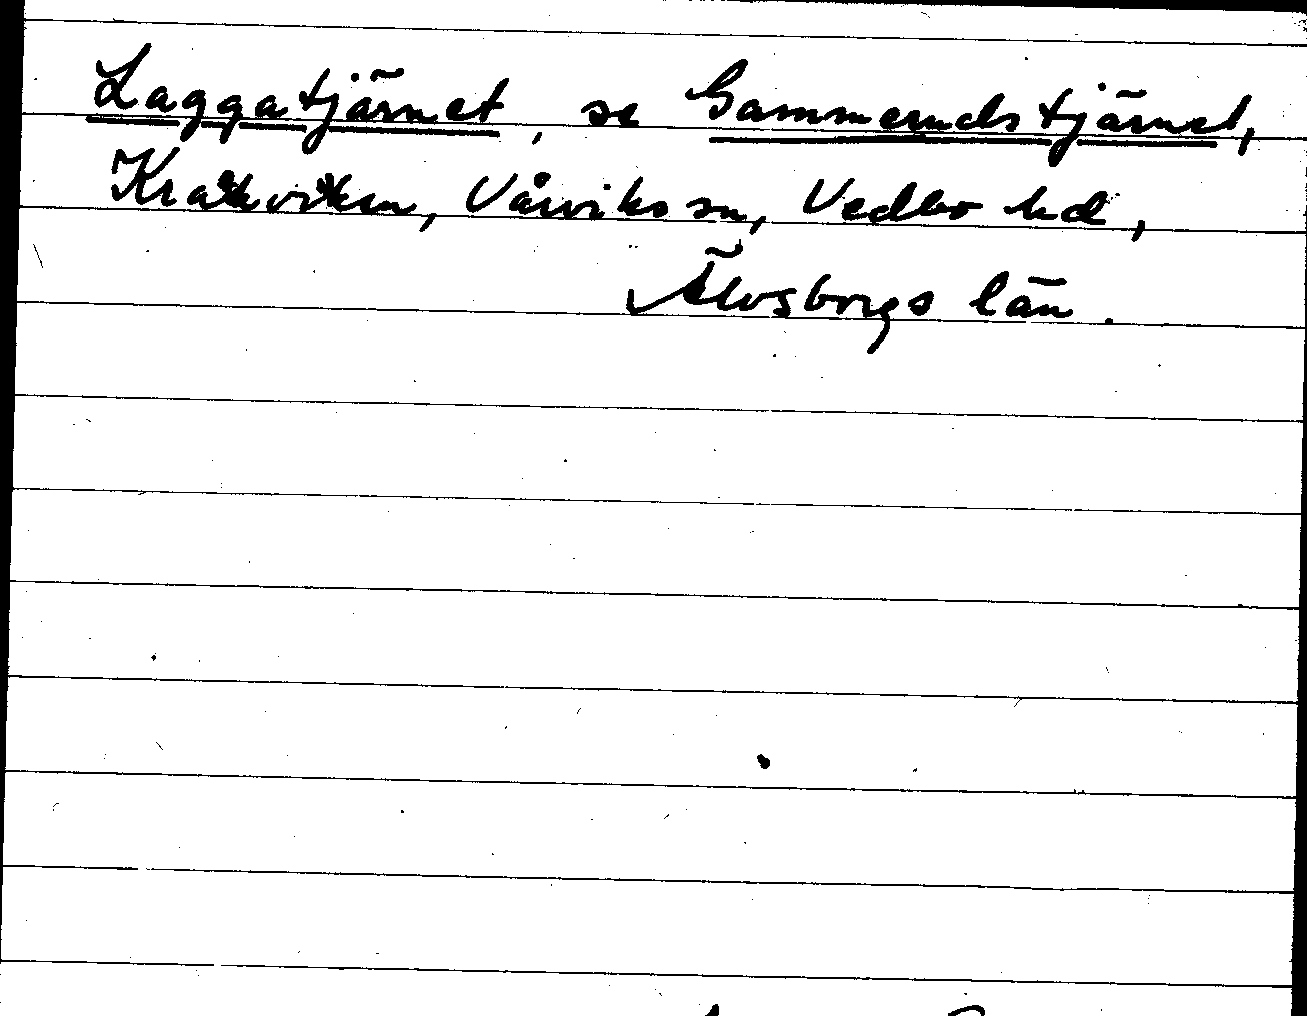 Laggatjärnet, se Gammerudstjärnet,
Krakviken, Vårviks sn, Vedbo hd,
Älvsborgs län.